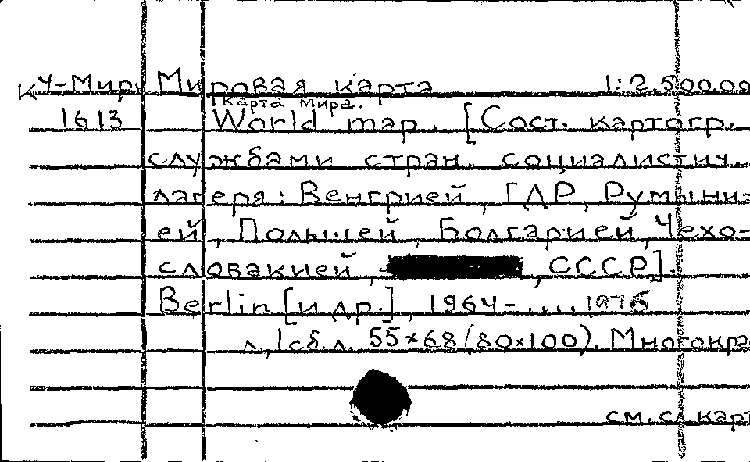 К4-Мир. Мировая карта 1:2.500.00
Карта мира.
1613 World map. [Сост. картогр.
службами стран социалистич.
лагеря: Венгрией, ГДР, Румыни-
ей, Польшей, Болгарией, Чехо-
словакией, , СССР].
Berlin [и др.], 1964-....1976
л, 1 сб.л. 55×68 (80×100). Многокра
см.сл.карт